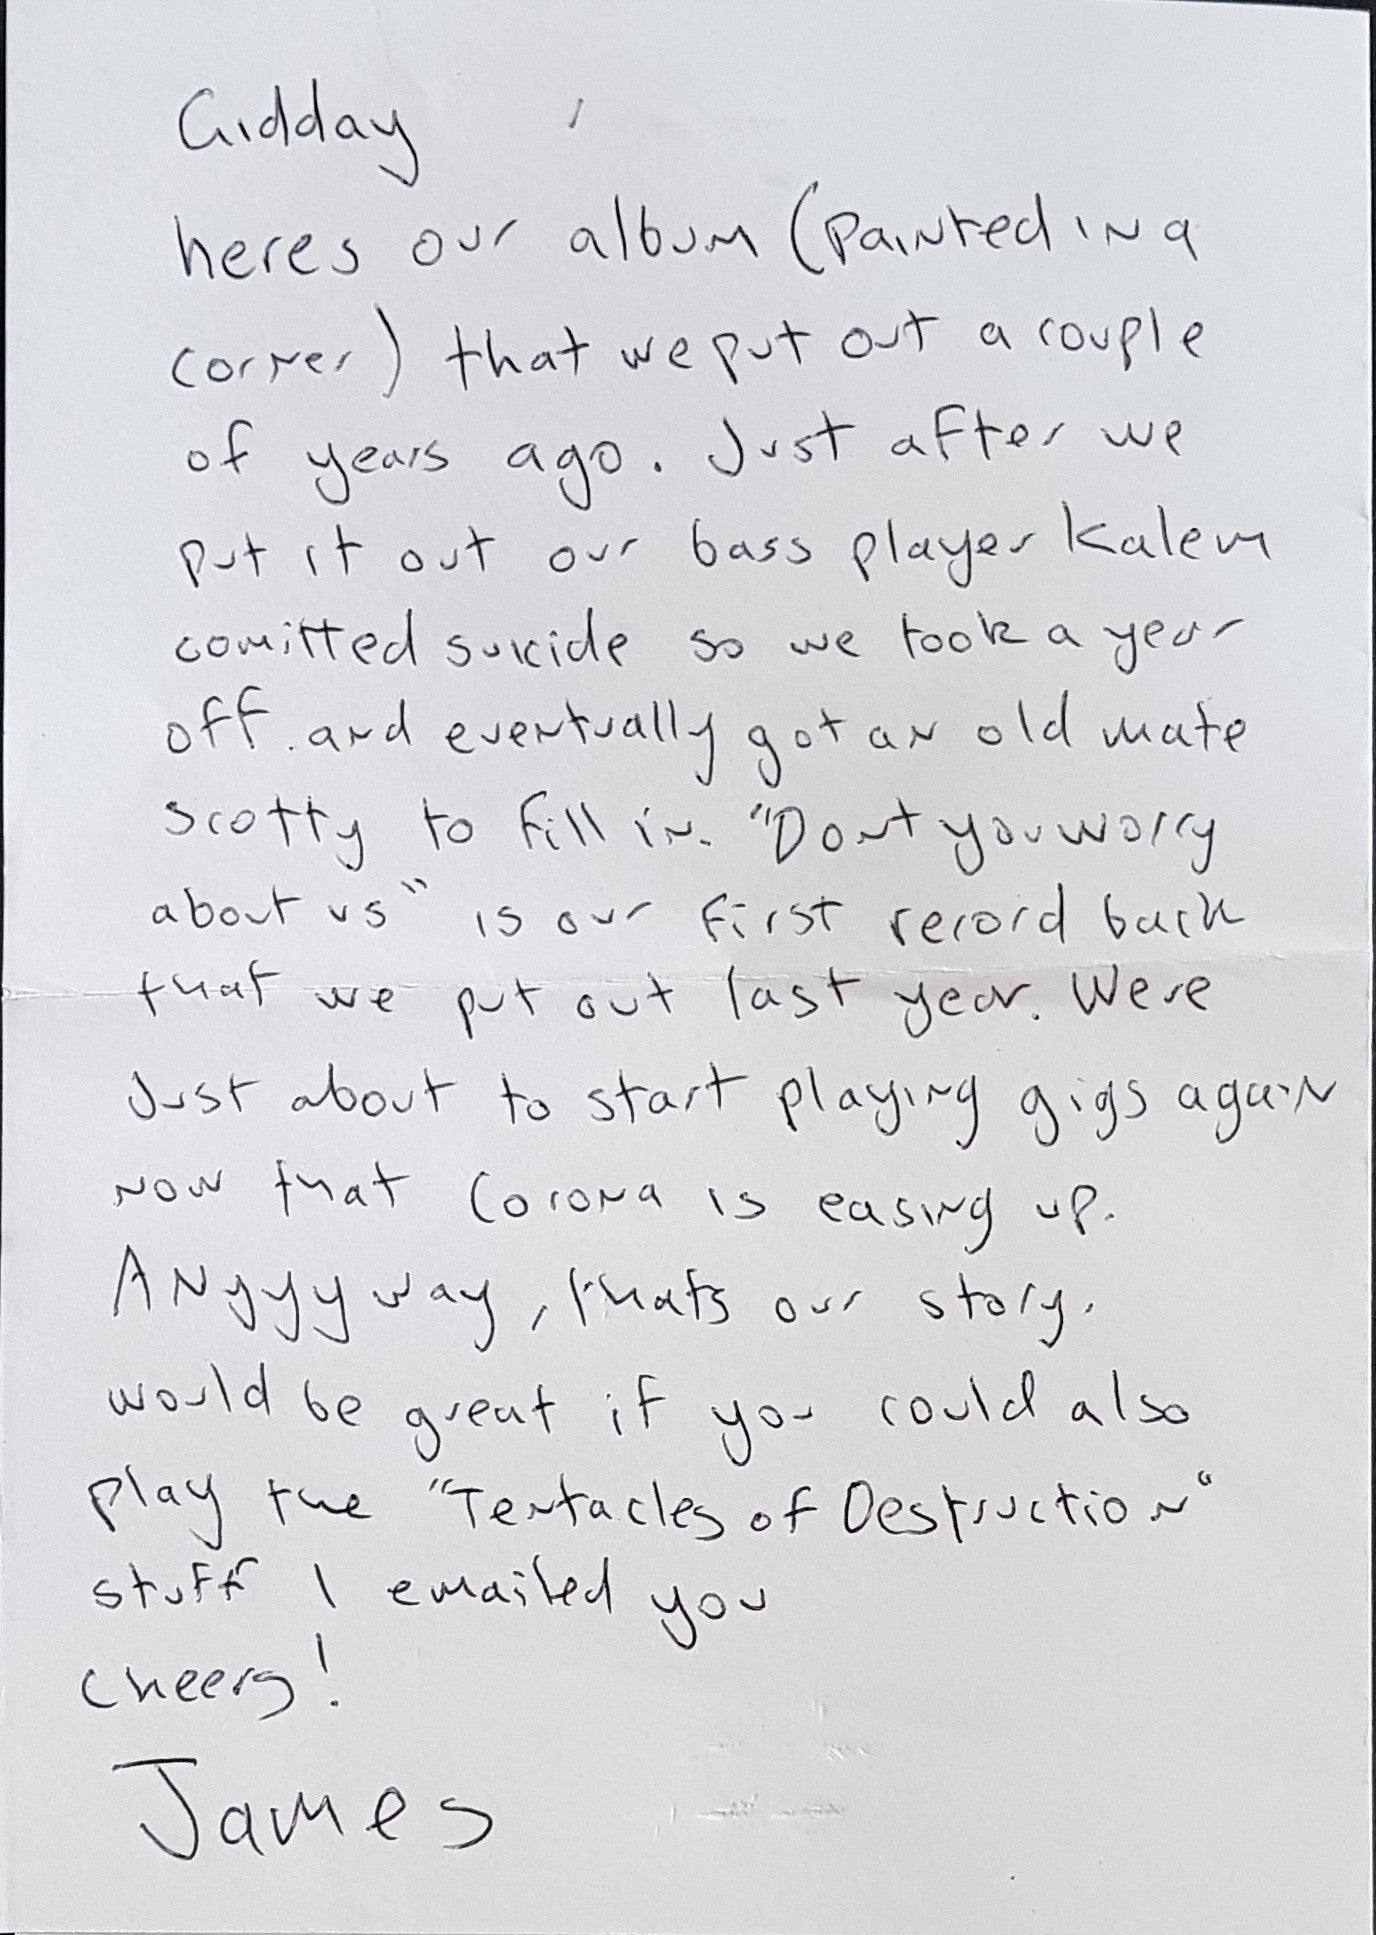 Gidday
heres our album (Painted in a
corner) that we put out a couple
of years ago. Just after we
put it out our bass player Kalem
comitted suicide so we took a year
off. and eventually got an old mate
scotty to fill in. "Dont you worry
about us" is our first record back
that we put out last year. Were
Just about to start playing gigs again
now that Corona is easing up.
ANyyyyway, thats our story.
would be great if you could also
play the "Tentacles of Destruction"
stuff I emailed you
cheers!
James